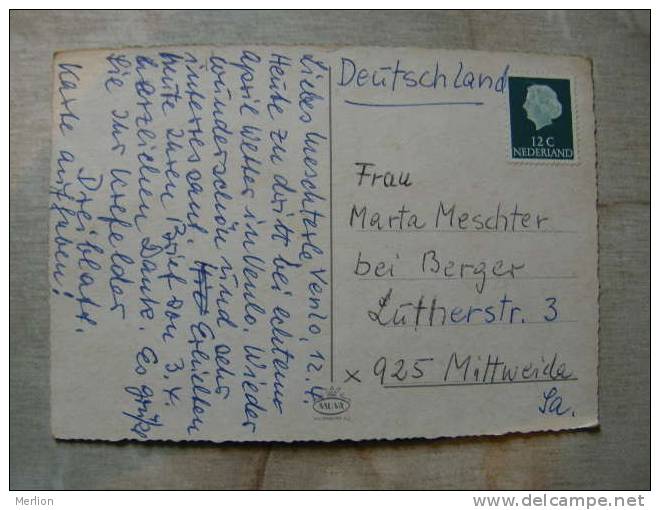 Liebes Meschterle, Venlo, 12.4.
Heute zu dritt bei echtem
April Wetter in Venlo. Wieder
wunderschön und sehr
interessant. Erhielten
heute Ihren Brief von 3.4.
herzlichen Dank. Es grüßt
Sie Ihr Krefelder
Dreiblatt.
Karte aufhaben!
Deutschland
12 C
NEDERLAND
Frau
Marta Meschter
bei Berger
Lutherstr. 3
x 925 Mittweida
Sa.
MUVA
Merlion
http://www.delcampe.net